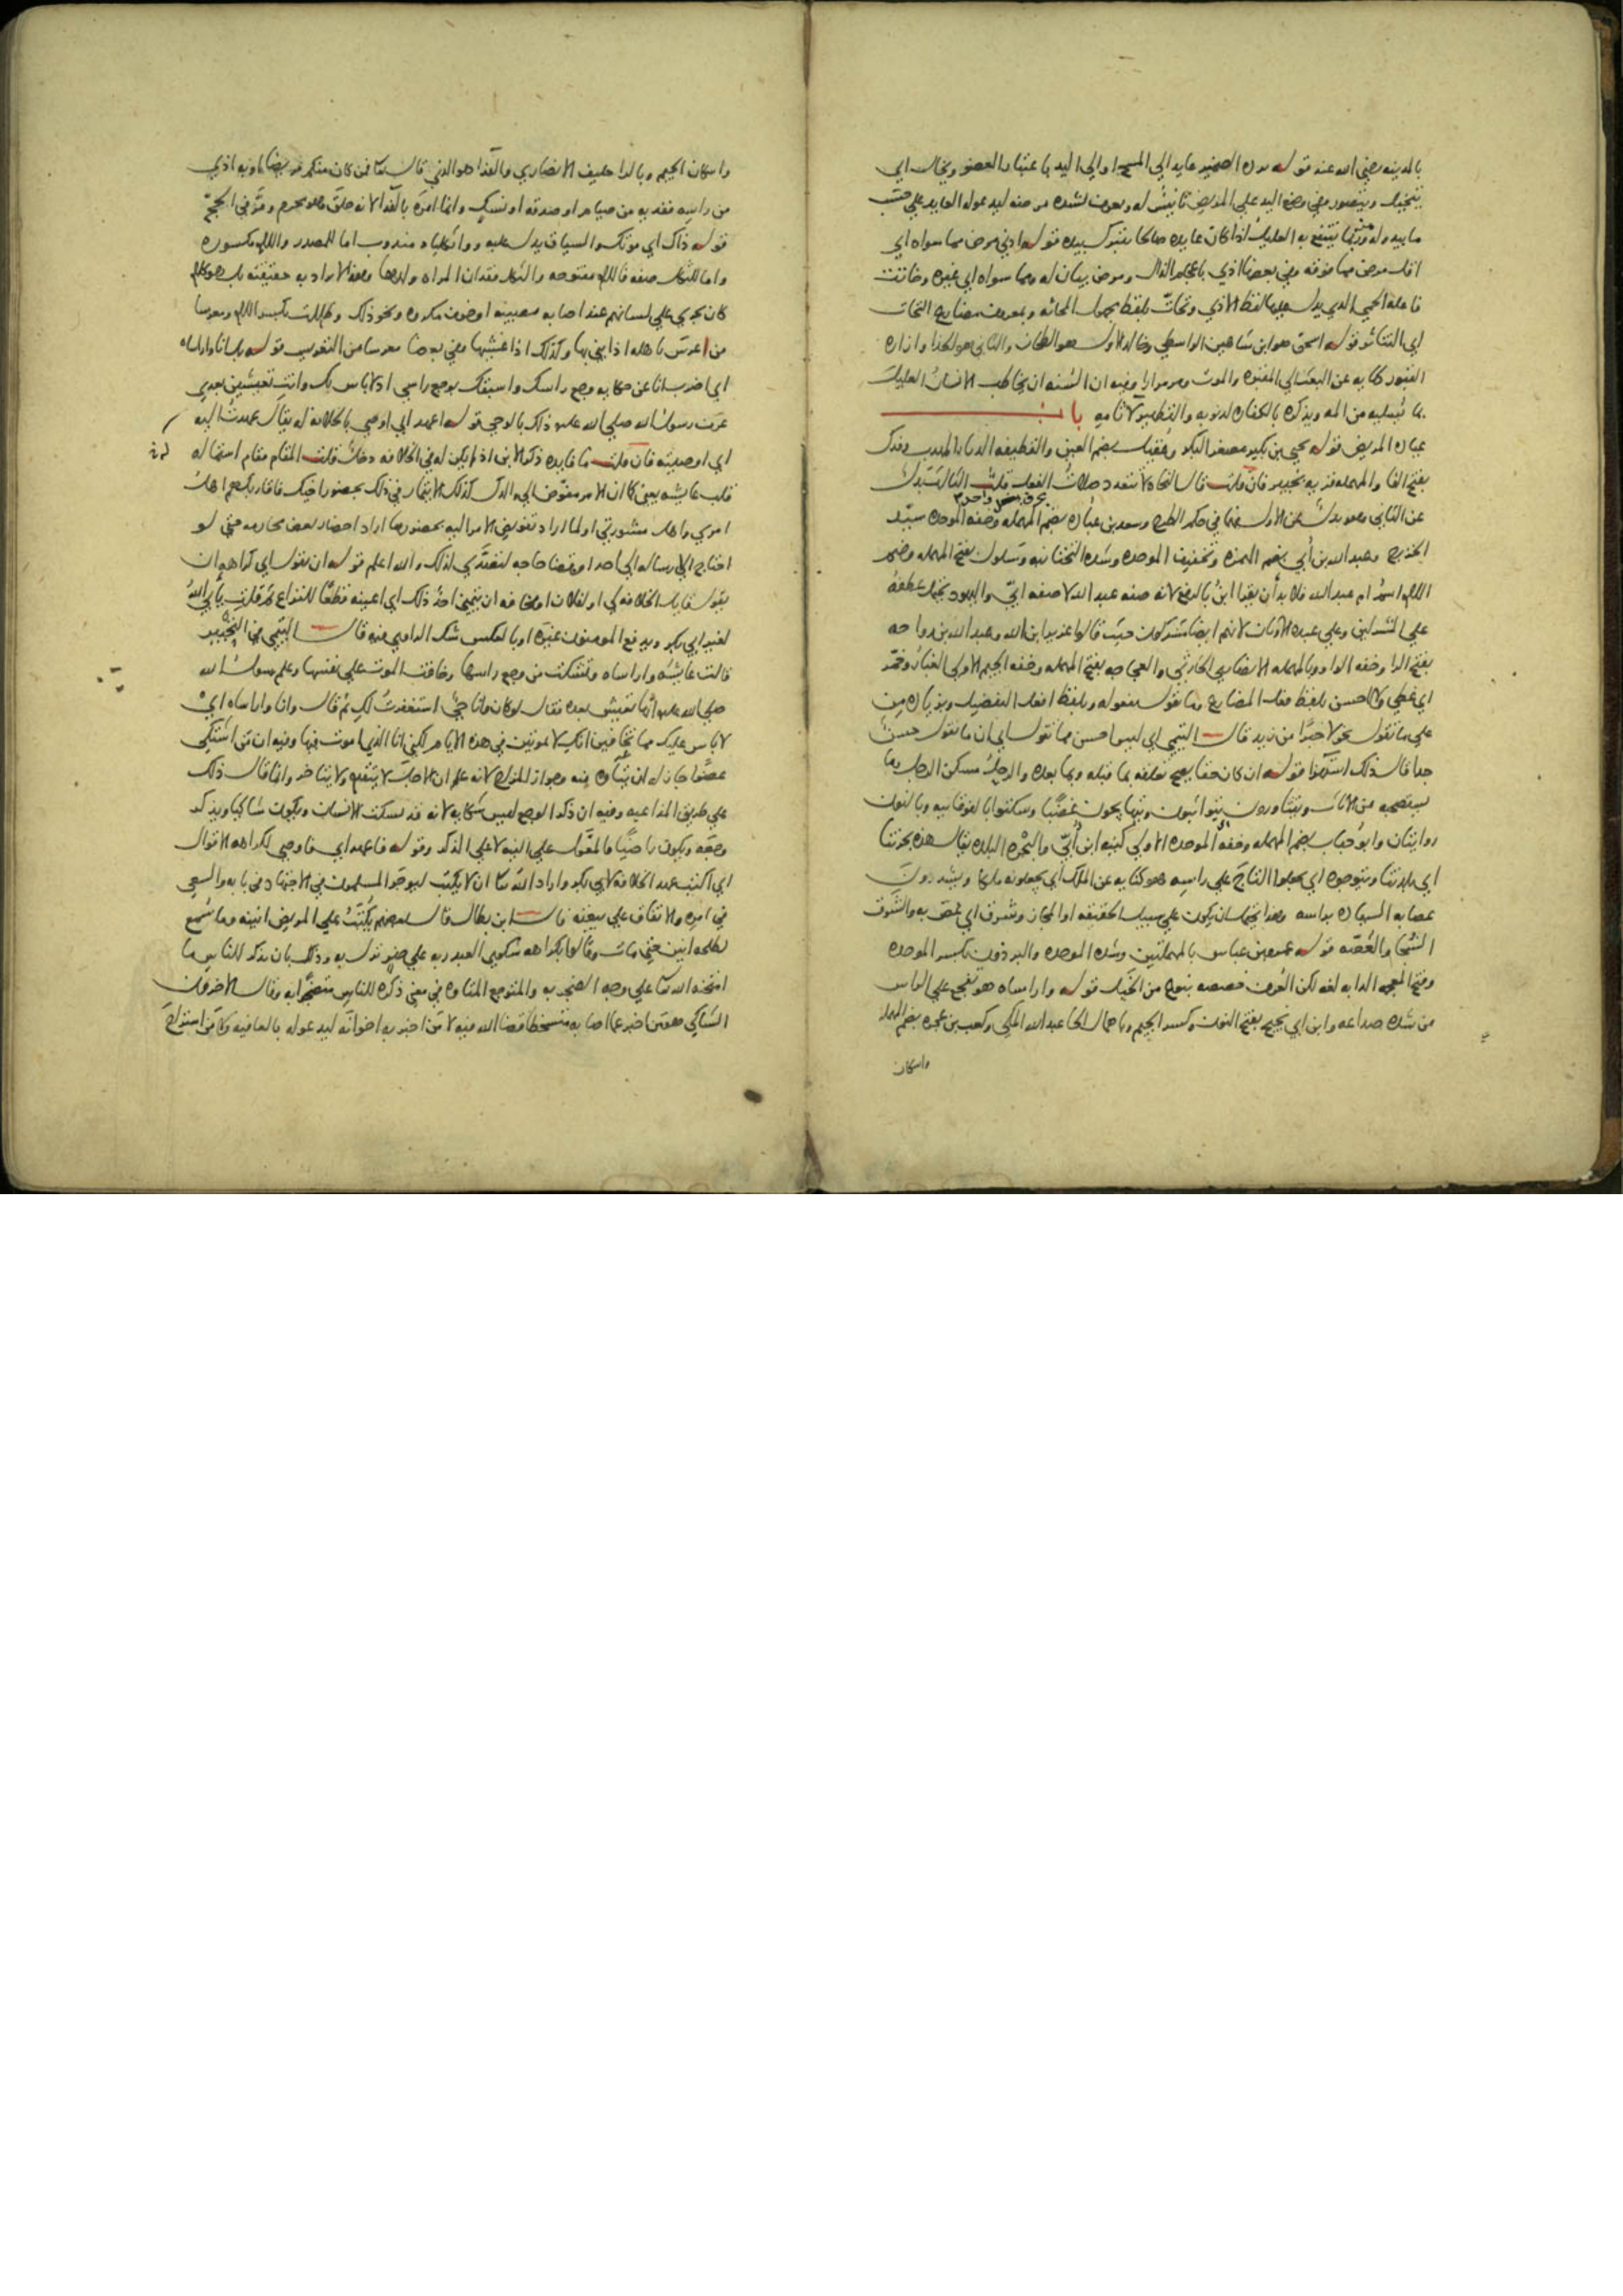 بالمدينه رضي الله عنه قوله برده الضمير عايد الي المسح او الي اليد باعتبار العضو ويخال اي
يتخيل ويتصور وفي وضع اليد علي المريض تانيس له وتعرف لشده مرضه ليدعو له العايد علي حسب
ما يبدو له وربما ينتفع به العليل اذا كان عايده صالحا يتبرك بيده قوله ادني مرض فما سواه اي
اقل مرض فما فوقه وفي بعضها اذي باعجام الذال ومرض بيان له وما سواه اي غيره وحاتت
فاعله الحمي الذي يدل عليها لفظ الاذي وتحات بلفظ مجهول المحاته وبمعروف مضارع التحات
اي التناثر قوله اسحق هو ابن شاهين الواسطي وخالد الاول هو الطحان والثاني هو الحذا وازاره
القبور كنايه عن البعث الي المقبره والموت ومر مرارا وفيه ان السنه ان يخاطب الانسان العليل
بما يسليه من المه ويذكره بالكفاره لذنوبه والتطهير لاثامه باب
عياده المريض قوله يحيي بن بكير مصغر البكر وعقيل بضم العين والقطيفه الدثار المهدب وفدك
بفتح الفا والمهمله قريه بخيبر فان قلت قال النحاه لا يتعدد صلات الفعل بحرف واحد قلت الثالث بدل
عن الثاني وهو بدل عن الاول فهما في حكم الطرح وسعد بن عباده بضم المهمله وخفه الموحده سيد
الخزرج وعبد الله بن ابي بضم الهمزه وتخفيف الموحده وشده التحتانيه وسلول بفتح المهمله وضم
اللام اسم ام عبد الله فلا بد ان يقرا ابن بالرفع لانه صفه عبد الله لا صفه ابي واليهود يحتمل عطفه
علي المشركين وعلي عبده الاوثان لانهم ايضا مشركون حيث قالوا عزير ابن الله وعبد الله بن رواحه
بفتح الرا وخفه الواو وبالمهمله الانصاري الحارثي والعجاجه بفتح المهمله وخفه الجيم الاولي الغبار وخمر
اي غطي ولا احسن بلفظ فعل المضارع وما تقول مفعوله وبلفظ افعل التفضيل وبزياده من
علي ما تقول نحو لا خيرا من زيد قال التيمي اي ليس احسن مما تقول اي ان ما تقول حسن
جدا قال ذلك استهزا قوله ان كان حقا يصح تعلقه بما قبله وبما بعده والرحل مسكن الرجل وما
يستصحبه من الاثاث ويتثاورون يتواثبون ويتهايجون غضبا وسكتوا بالفوقانيه وبالنون
روايتان وابو حباب بضم المهمله وخفه الموحده الاولي كنيه ابن ابي والبحره البلده يقال هذه بحرتنا
اي بلدتنا ويتوجوه اي يجعلوا التاج علي راسه هو كنايه عن الملك اي يجعلونه ملكا ويشدون
عصابه السياده براسه وهذا يحتمل ان يكون علي سبيل الحقيقه او المجاز وشرق اي غص به والشرق
الشجا والغصه قوله عمرو بن عباس بالمهملتين وشده الموحده والبرذون بكسر الموحده
وفتح المعجمه الدابه لغه لكن العرف خصصه بنوع من الخيل قوله وا راساه هو تفجع علي الراس
من شده صداعه وابن ابي نجيح بفتح النون وكسر الجيم وباهمال الحا عبد الله المكي وكعب بن عجره بضم المهمله
واسكان
واسكان الجيم وبالرا حليف الانصاري والفدا هو الذي قال تعالي فمن كان منكم مريضا او به اذي
من راسه ففديه من صيام او صدقه او نسك وانما امره بالفدا لانه حلق وهو محرم ومر في الحج
قوله ذاك اي موتك والسياق يدل عليه ووا ثكلياه مندوب اما للمصدر واللام مكسوره
واما للثكلي صفه فاللام مفتوحه والثكل فقدان المراه ولدها وهذا لا يراد به حقيقته بل هو كلام
كان يجري علي لسانهم عند اصابه مصيبه او خوف مكروه ونحو ذلك وظللت بكسر اللام ومعرسا
من اعرس باهله اذا بني بها وكذلك اذا غشيها وفي بعضها معرسا من التعريس قوله بل انا وا راساه
اي اضرب انا عن حكايه وجع راسك واشتغل بوجع راسي اذ لا باس بك وانت تعيشين بعدي
عرف رسول الله صلي الله عليه ذلك بالوحي قوله اعهد اي اوصي بالخلافه له يقال عهدت اليه
اي اوصيته فان قلت ما فايده ذكر الابن اذ لم يكن له في الخلافه دخل قلت المقام مقام استماله
قلب عايشه يعني كما ان الامر مفوض الي والدك كذلك الايتمار في ذلك بحضور اخيك فاقاربك هم اهل
امري واهل مشورتي او لما اراد تفويض الامر اليه بحضورها اراد احضار بعض محارمه حتي لو
احتاج الي رساله الي احد او قضا حاجه لتصدي لذلك والله اعلم قوله ان يقول اي كراهه ان
يقول قايل الخلافه لي او لفلان او مخافه ان يتمني احد ذلك اي اعينه قطعا للنزاع ثم قلت يابي الله
لغير ابي بكر ويدفع المومنون غيره او بالعكس شك الراوي فيه قال التيمي في التحبير
قالت عايشه وا راساه وتشكت من وجع راسها وخافت الموت علي نفسها وعلم رسول الله
صلي الله عليه انها تعيش بعده فقال لو كان وانا حي استغفرت لك ثم قال وانا وا راساه اي
لا باس عليك مما تخافين انك لا تموتين في هذه الايام لكني انا الذي اموت فيها وفيه ان من اشتكي
عضوا جاز له ان يتاوه منه وجواز المزاح لانه علم ان الاجل لا يتقدم ولا يتاخر وانما قال ذلك
علي طريق المداعبه وفيه ان ذكر الوجع ليس بشكايه لانه قد يسكت الانسان ويكون شاكيا ويذكر
وجعه ويكون راضيا فالمعول علي النيه لا علي الذكر وقوله فاعهد اي فاوصي لكراهه الاقوال
اي اكتب عهد الخلافه لابي بكر واراد الله تعالي ان لا يكتب ليوجر المسلمون في الاجتهاد في بابه والسعي
في امره والاتفاق علي بيعته قال ابن بطال قال بعضهم يكتب علي المريض انينه وما سمع
لطلحه انين حتي مات وقالوا بكراهه شكوي العبد ربه علي ضر نزل به وذلك بان يذكر للناس ما
امتحنه الله تعالي علي وجه الضجر به والمتوجع المتاوه في معني ذكره للناس متضجرا به وقال الاخرون
الشاكي هو من اخبر عما اصابه متسخطا قضا الله فيه لا من اخبر به اخوانه ليدعوا له بالعافيه ولا من استراح